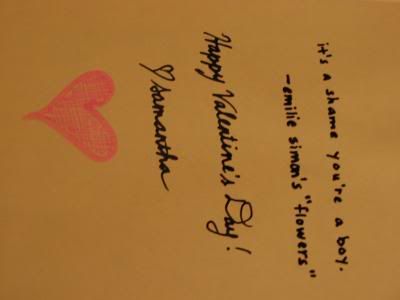 it's a shame you're a boy.
-emilie simon's "flowers"
Happy Valentine's Day!
♡Samantha